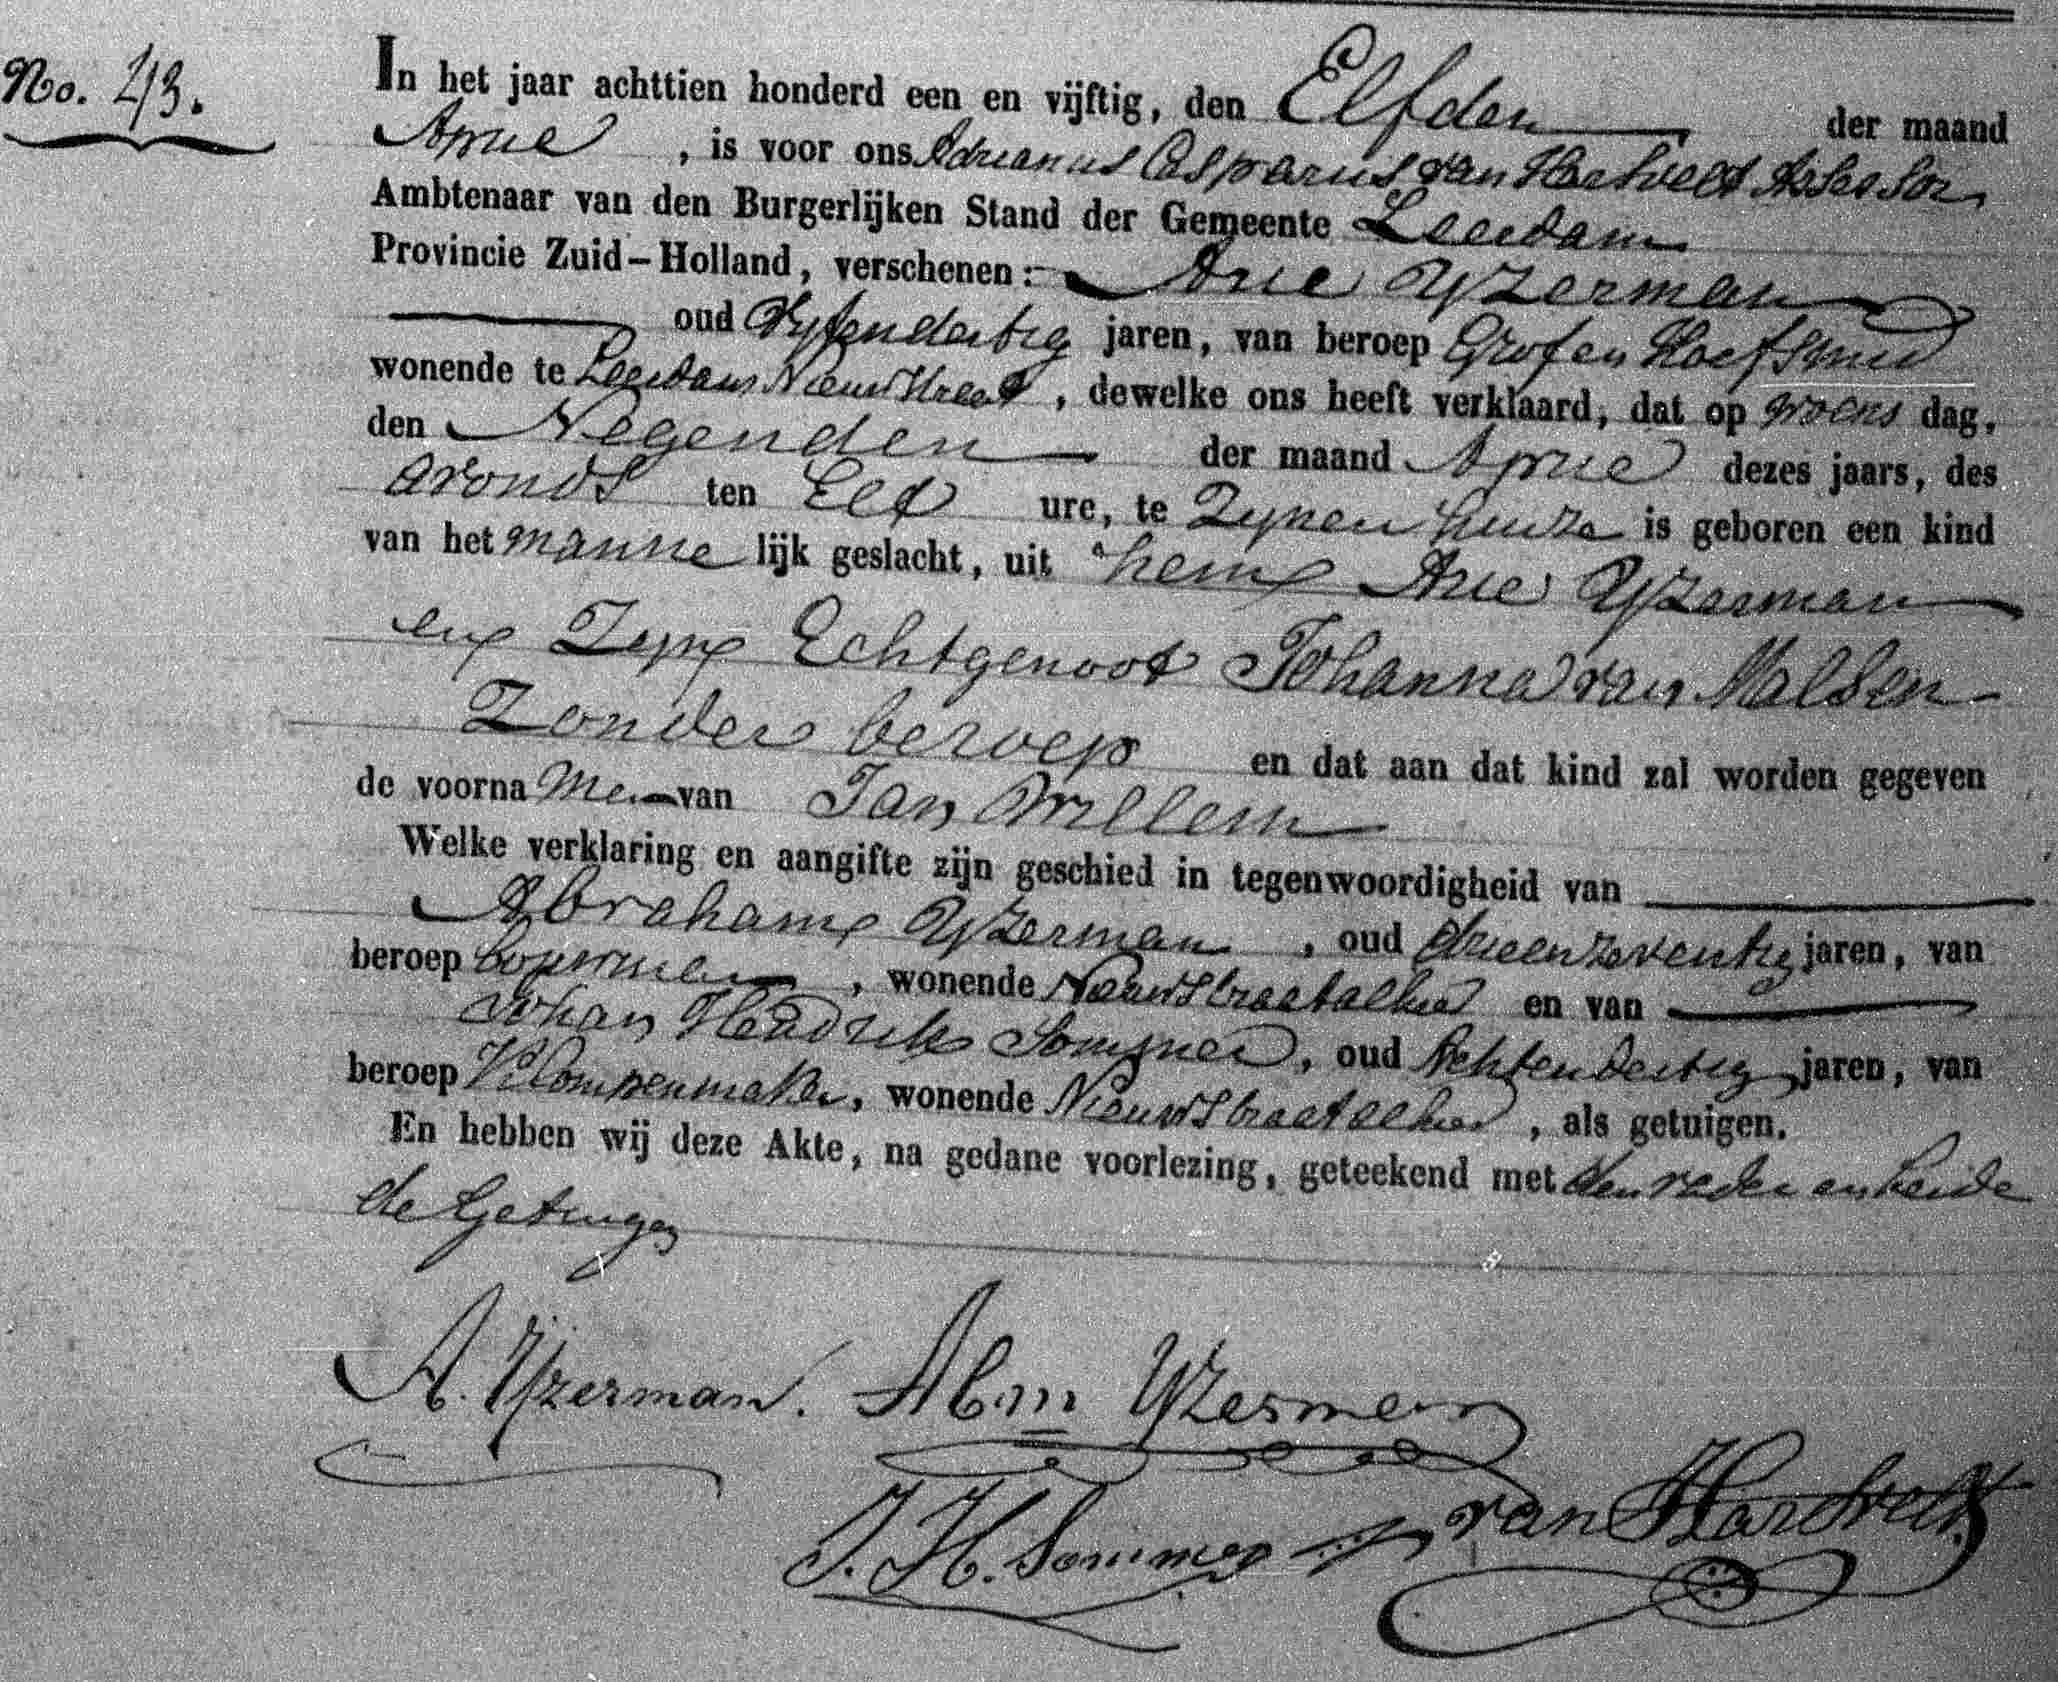 No. 43.
In het jaar achttien honderd een en vijftig, den Elfden der maand
April, is voor ons Adrianus Casparus van Haetvelt Assessor
Ambtenaar van den Burgerlijken Stand der Gemeente Leerdam
Provincie Zuid-Holland, verschenen: Arie Yzerman
oud Vyfendertig jaren, van beroep Grof en Hoefsmid
wonende te Leerdam Nieuwstraat, dewelke ons heeft verklaard, dat op woens dag,
den Negenden der maand April dezes jaars, des
avonds ten Elf ure, te Zynen huize is geboren een kind
van het manne lijk geslacht, uit hem Arie Yzerman
en Zyn Echtgenoot Johanna van Malsen
Zonder beroep en dat aan dat kind zal worden gegeven
de voorna men van Jan Willem
Welke verklaring en aangifte zijn geschied in tegenwoordigheid van
Abraham Yzerman, oud drieenzeventig jaren, van
beroep, wonende Nieuwstraat alhier en van
Johan Hendrik Sommer, oud Achtendertig jaren, van
beroep Klompenmaker, wonende Nieuwstraat alhier, als getuigen.
En hebben wij deze Akte, na gedane voorlezing, geteekend met den vader en beide
de Getuigen
A. Yzerman. Abm Yzerman
J. H. Sommer van Haetvelt